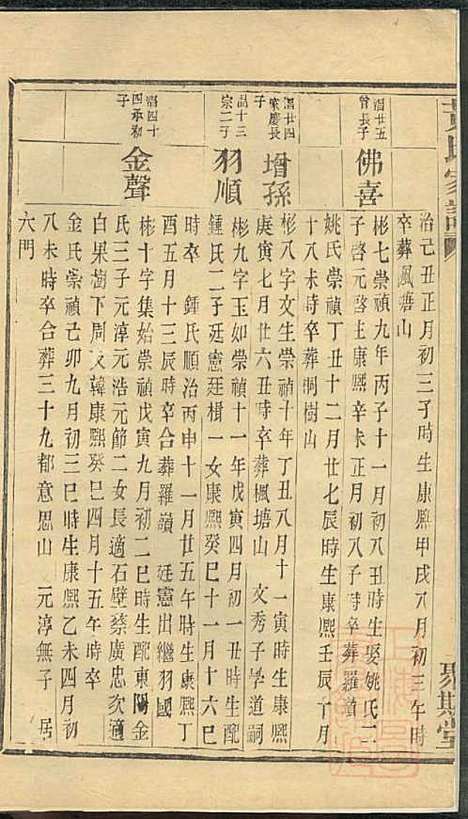 治己丑正月初三子時生康熙甲戌八月初三午時
卒葬風塘山
溜廿五
曾長子
佛喜
彬七崇禎九年丙子十一月初八丑時生娶姚氏二
子啓元啓主康熙辛卡正月初八子時卒葬羅嶺
姚氏崇禎丁丑十二月廿七辰時生康熙壬辰八月
十八未時卒葬桐樹山
溜廿四
慶長
子
增孫
彬八字文生崇禎十年丁丑八月十一寅時生康熙
庚寅七月廿六丑時卒葬楓塘山 文秀子學道嗣
品十三
宗二子
羽順
彬九字玉如崇禎十一年戊寅四月初一丑時生配
鍾氏二子廷憲廷楫一女康熙癸巳十一月十六巳
時卒 鍾氏順治丙申十一月廿五午時生康熙丁
酉五月十三辰時卒合葬羅嶺 廷憲出繼羽國
溜四十
四承和
子
金聲
彬十字集始崇禎戊寅九月初二巳時生配東陽金
氏三子元淳元浩元節二女長適石壁蔡廣忠次適
白果樹下周 韓康熙癸巳四月十五午時卒
金氏崇禎己卯九月初三巳時生康熙乙未四月初
八未時卒合葬三十九都意思山 元淳無子 居
六門
氏家譜
聚斯堂